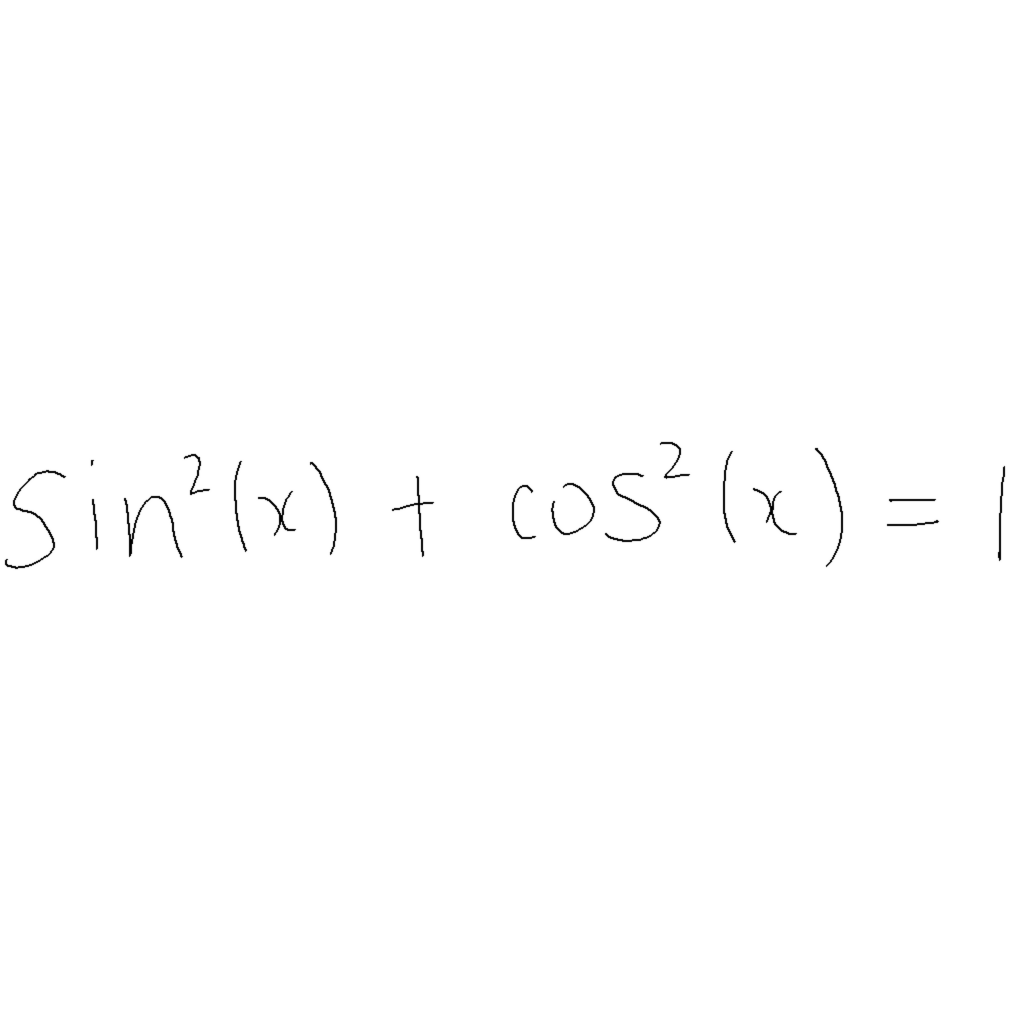 sin²(x) + cos²(x) = 1